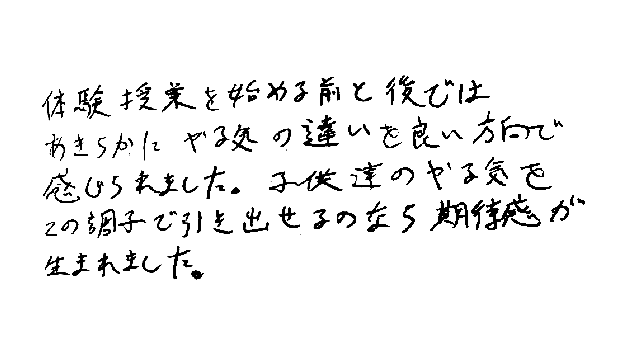 体験授業を始める前と後では
あきらかにやる気の違いを良い方向で
感じられました。子供達のやる気を
この調子で引き出せるのなら期待感が
生まれました。